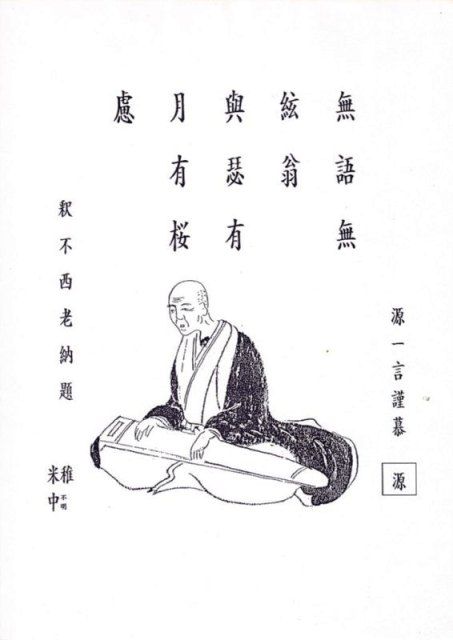 無語無
絃翁
與瑟有
月有桜
慮
釈不西老納題
源一言謹慕
源
稚不明
米中